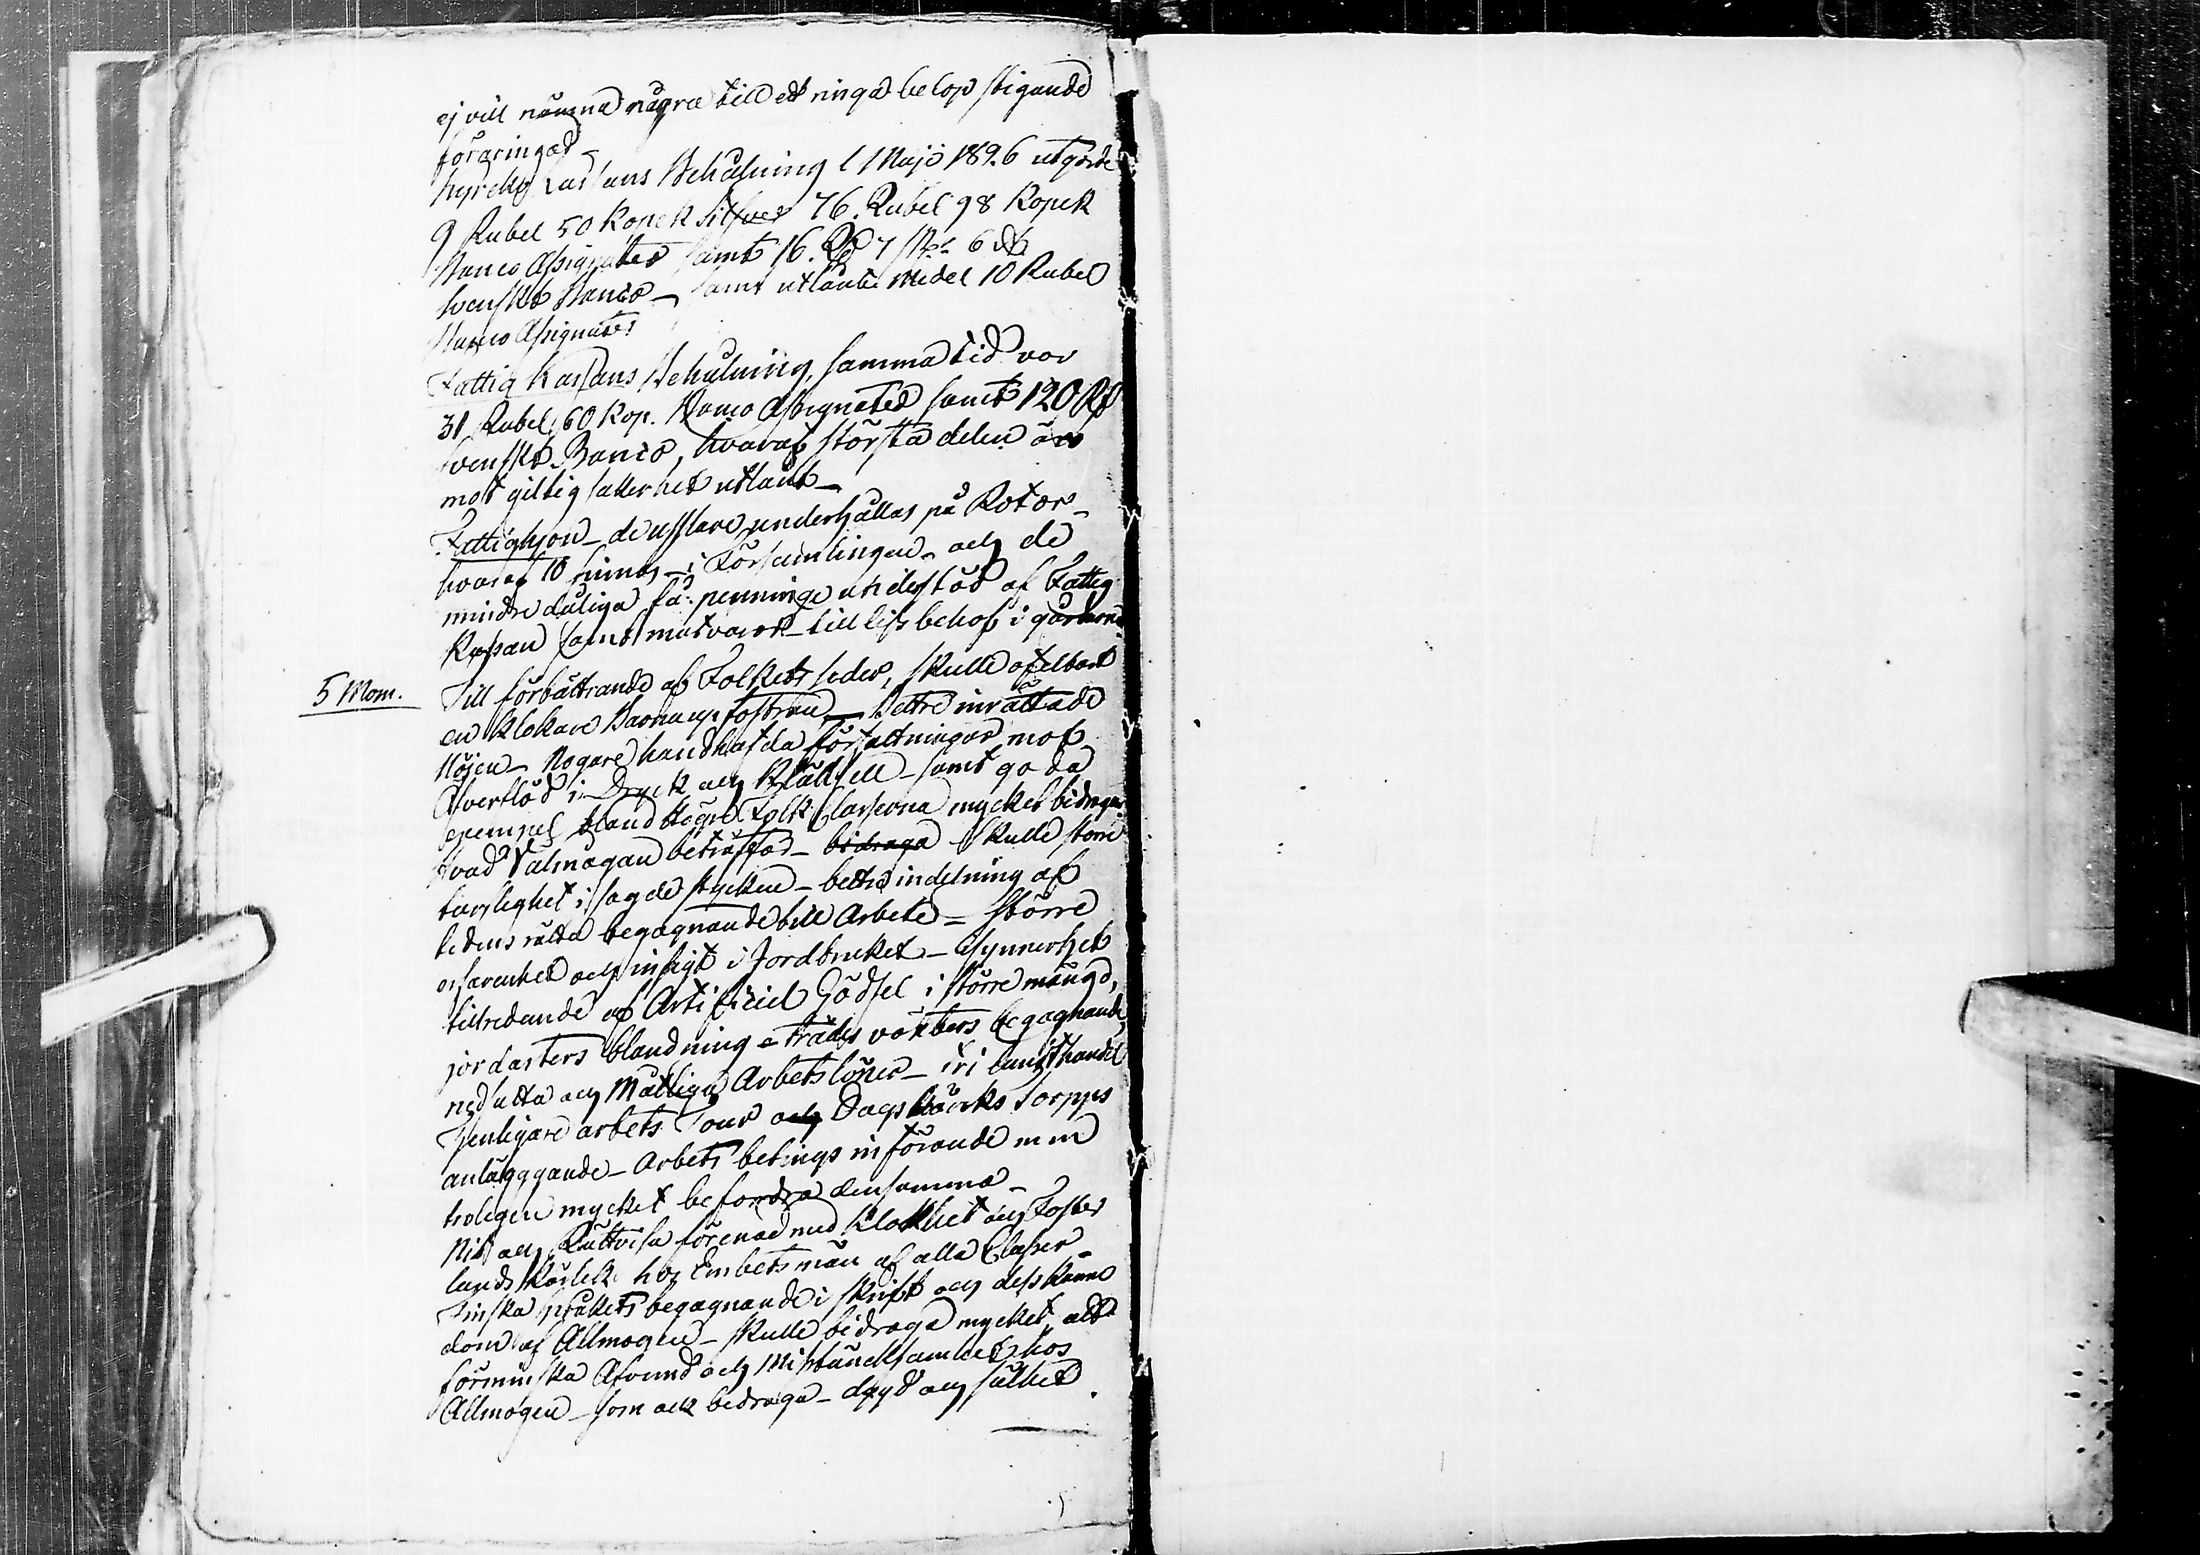 ej vill nämna några till ett ringa belop stigande
föräringar
kyrcko Cassans Behålning 1 Maji 1826 utgörde
9 Rubel 50 Kopek silfver 76 Rubel 98 Kopek
Banco Assignater samt 16 Rd 7 sk 6
svenskt Banco samt utlånte medel 10 Rubel
Banco Assignater
Fattig Kassans Behålning, samma tid var
31 Rubel 60 Kop. Banco Assignater samt 120 Rd
svenskt Banco, hvaraf största delen är
mot giltig säkerhet utlånt
Fattighjon de usslare underhållas på Rotar
hvaraf 10 finnas i Församlingen och de
mindre dåliga få penninge understöd af Fattig
Kassan samt matvaror till lifs behof i gårdarne
5 Mom.
Till förbättrande af Folkets seder, skulle ofelbart
en klokare Barna up fostran bettre inrättade
Nöjen Nogare handhafda författningar mot
Öfverflöd i Dryck och Klädsell samt goda
exempel bland Högre Folk Classerna mycket bidraga
Hvad Valmågan beträffar bidraga skulle större
tarflighet i sagde stycken bettre indelning af
tidens rätta begagnande till Arbete större
erfarenhet och insigt i Jordbruket i synnerhet
tillredande af Artificiel Gödsel i större mängd,
jordarters blandning träds växters begagnande,
nedsatta och Måttliga Arbetslöner fri landthandel
Tjenligare arbets Tour och Dagsvärks Torpps
anläggande Arbets betings införande m m
troligen mycket befordra densamma
Nit och Rättvisa förenad med Klokhet och Foster
lands kärlek hos Embetsmän af alla Classer
Finska språkets begagnande i skrift och dess känne
dom af Allmogen skulle bidraga mycket att
förminska Afvund och Misstänksamhet hos
Allmogen som ock bedraga dygd och sällhet